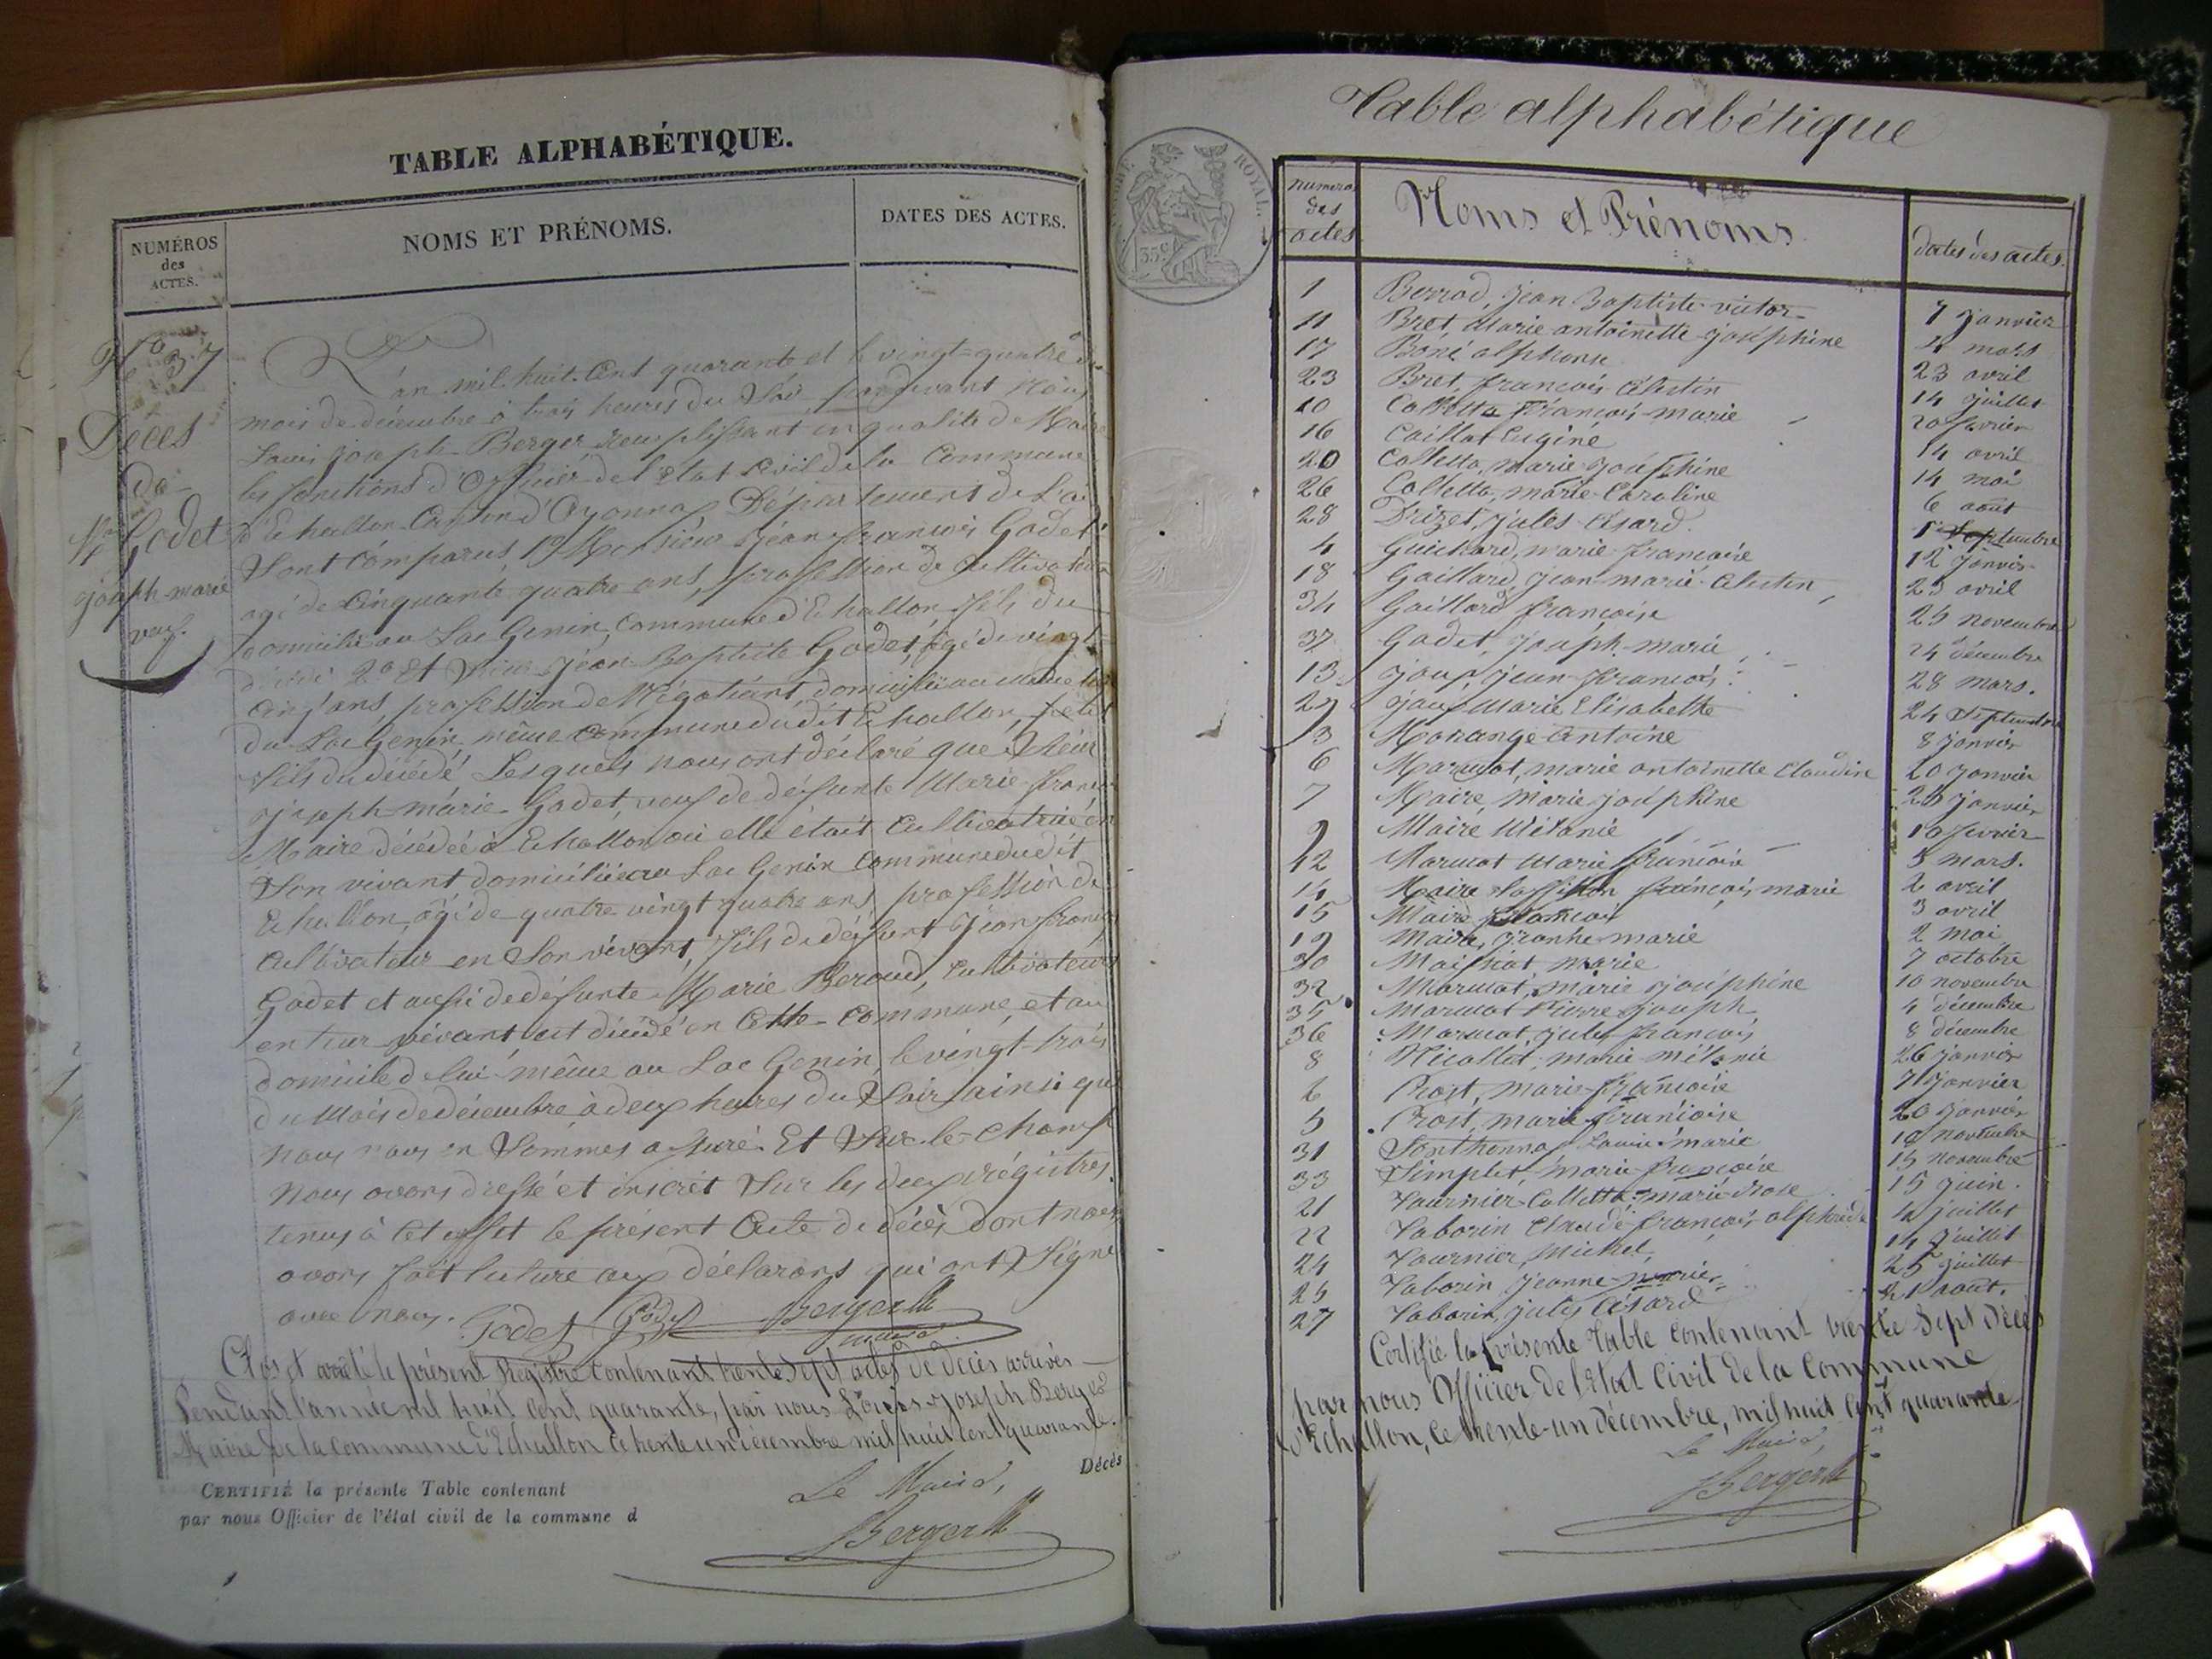 TABLE ALPHABÉTIQUE.
NUMÉROS
des
ACTES.
NOMS ET PRÉNOMS.
DATES DES ACTES.
No 37
Décès
de
Godet
joseph-marie
veuf.
L'an mil-huit-Cent quarante et le vingt-quatre du
mois de décembre à trois heures du Soir pardevant Nous
Louis joseph Berger remplissant en qualité de Maire
les fonctions d'Officier de l'Etat Civil de la Commune
d'Echallon Canton d'Oyonnax Département de l'Ain
Sont Comparus, 1o Monsieur jean-francois Godet
agé de Cinquante quatre ans, profession de Cultivateur
domicilié au Lac Genin, Commune d'Echallon fils du
décédé 2o Et Sieur jean-Baptiste Godet, âgé de vingt-
Cinq ans, profession de Négotiant, domicilié au
du Lac Genin même Commune dudit Echallon, petit
fils du décédé Lesquels nous ont déclaré que
joseph-marie-Godet, veuf de défunte Marie-
Maire décédée à Echallon où elle était Cultivatrice en
Son vivant domicilié au Lac Genin Commune dudit
Echallon, âgé de quatre vingt quatre ans, profession de
Cultivateur en Son vivant, fils de défunt jean-francois
Godet et aussi de défunte Marie Beroud, Cultivateurs
en leur vivant est décédé en Cette-Commune, et au
domicile de lui-même au Lac Genin, le vingt-trois
du mois de décembre, à deux heures du Soir ainsi que
nous nous en Sommes assuré. Et Sur-le-Champ
Nous avons dressé et inscrit Sur les deux régistres
tenus à Cet effet le présent Acte de décès, dont nous
avons fait lecture aux déclarans qui ont Signé
avec Nous. Godet Godet Berger
maire
Clos et arrêté le présent Registre Contenant trente Sept actes de décès arrivés
Pendant l'année mil huit Cent quarante, par nous Louis-Joseph Berger
Maire de la Commune d'Echallon ce trente un décembre mil huit cent quarante.
Décès
CERTIFIÉ la présente Table contenant
par nous Officier de l'état civil de la commune d
Le Maire,
Berger
Table alphabétique
TIMBRE ROYAL.
35c
numéros
des
actes
Noms et Prénoms
dates des actes.
1 Berrod, jean Baptiste-victor 7 janvier
11 Bret, Marie-antoinette-joséphine 4 mars
17 Boné alphonse 23 avril
23 Bret, françois Célestin 14 juillet
10 Colletta François-marie 20 fevrier
16 Caillat Eugène 14 avril
20 Colletta, marie-joséphine 14 mai
26 Colletta, marie-Caroline 6 août
28 Drizet, jules-César 1er Septembre
4 Guichard, marie-françoise 12 janvier
18 Gaillard, jean-marie-Célestin 23 avril
34 Gaillard françoise 25 novembre
37 Godet, joseph-marie 24 décembre
13 joux, jean-françois 28 mars.
29 joux Marie Elisabeth 24 Septembre
3 Morange Antoine 8 janvier
6 Marmot, marie antoinette Claudine 20 janvier
7 Maire, Marie joséphine 26 janvier
9 Maire Mélanie 10 fevrier
12 Marmot Marie françoise 5 mars.
14 Maire françois marie 2 avril
15 Maire françois 3 avril
19 Maire, jeanne-marie 2 mai
30 Maissiat marie 7 octobre
32 Marmot, marie joséphine 10 novembre
35 Marmot Pierre joseph 4 décembre
36 Marmot, jules françois 8 décembre
8 Nicollet, marie mélanie 26 janvier
2 Prost, marie-françoise 7 janvier
5 Prost, marie françoise 20 janvier
31 Sonthonnax Louise marie 10 novembre
33 Simplet, marie-françoise 15 novembre
21 Tournier-Colletta-marie-rose 15 juin.
22 Taborin françois 12 juillet
24 Tournier, Michel, 14 juillet
25 Taborin jeanne-marie 25 juillet
27 Taborin, jules César 21 août.
Certifié la présente table contenant trente Sept Décès
par nous Officier de l'Etat Civil de la Commune
d'Echallon, ce trente-un décembre, mil huit cent quarante
Le Maire,
Berger